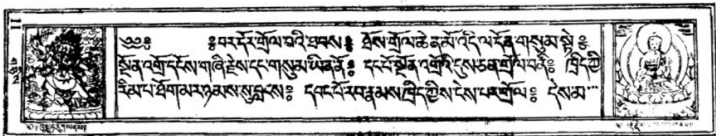 ༄༅༅༔ ༔བར་དོར་གྲོལ་བའི་ཐབས༔ ཐོས་གྲོལ་ཆེན་མོ་འདི་ལ་དོན་གསུམ་སྟེ༔
སྔོན་འགྲོ་དངོས་གཞི་རྗེས་དང་གསུམ་ཡིན་ནོ༔ དང་པོ་སྔོན་འགྲོར་ལུས་ཅན་གྲོལ་བ་ནི༔ ཁྲིད་ཀྱི་
རིམ་པ་ཐོག་མར་ཉམས་སུ་བླངས༔ དབང་པོ་རབ་རྣམས་ཁྲིད་ཀྱིས་ངེས་པར་གྲོལ༔ དེས་མ